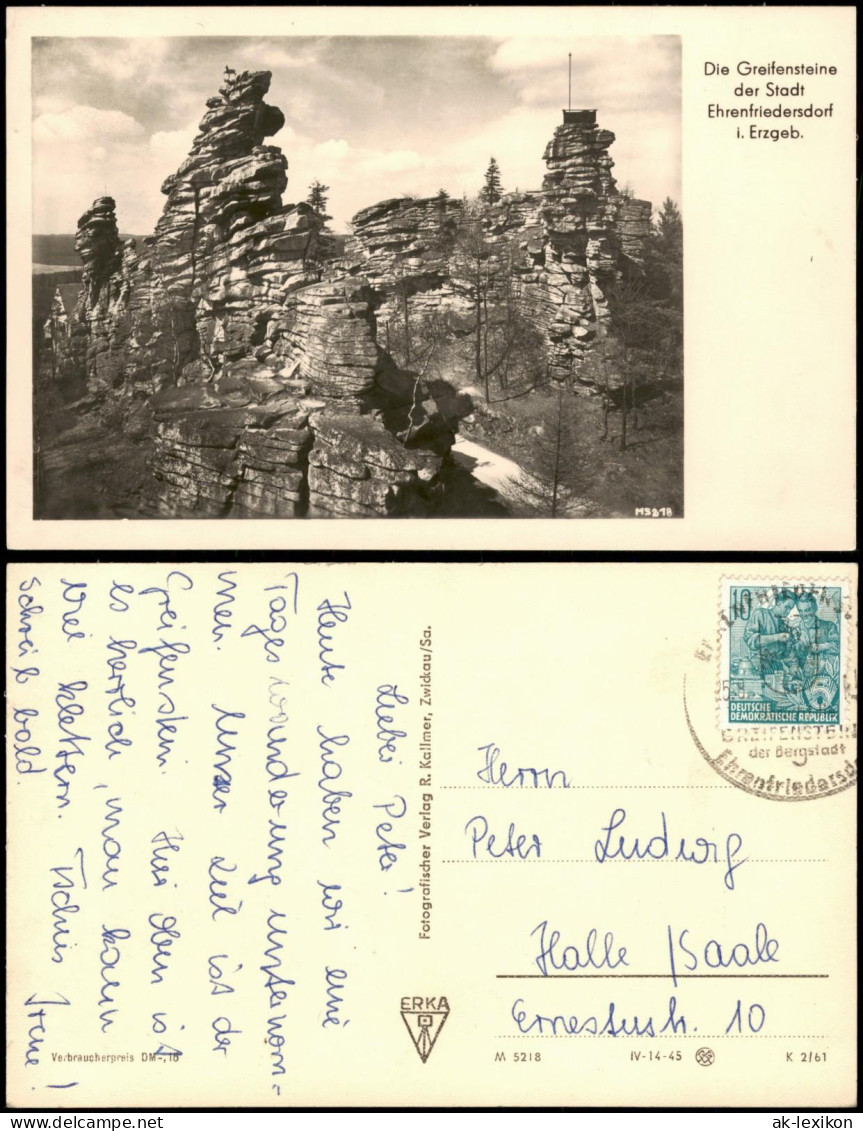 Die Greifensteine
der Stadt
Ehrenfriedersdorf
i. Erzgeb.
M5218
Lieber Peter!
Heute haben wir eine
Tageswanderung unternom-
men. Unser Ziel ist der
Greifenstein. Hier oben ist
es herrlich, man kann
viel klettern. Tschüs Irene!
Schreib bald
Verbraucherpreis DM -,18
Fotografischer Verlag R. Kallmer, Zwickau/Sa.
ERKA
10
DEUTSCHE
DEMOKRATISCHE REPUBLIK
GREIFENSTEIN
der Bergstadt
Ehrenfriedersdo
Herrn
Peter Ludwig
Halle/Saale
Ernestusstr. 10
M 5218 IV-14-45 K 2/61
ak-lexikon